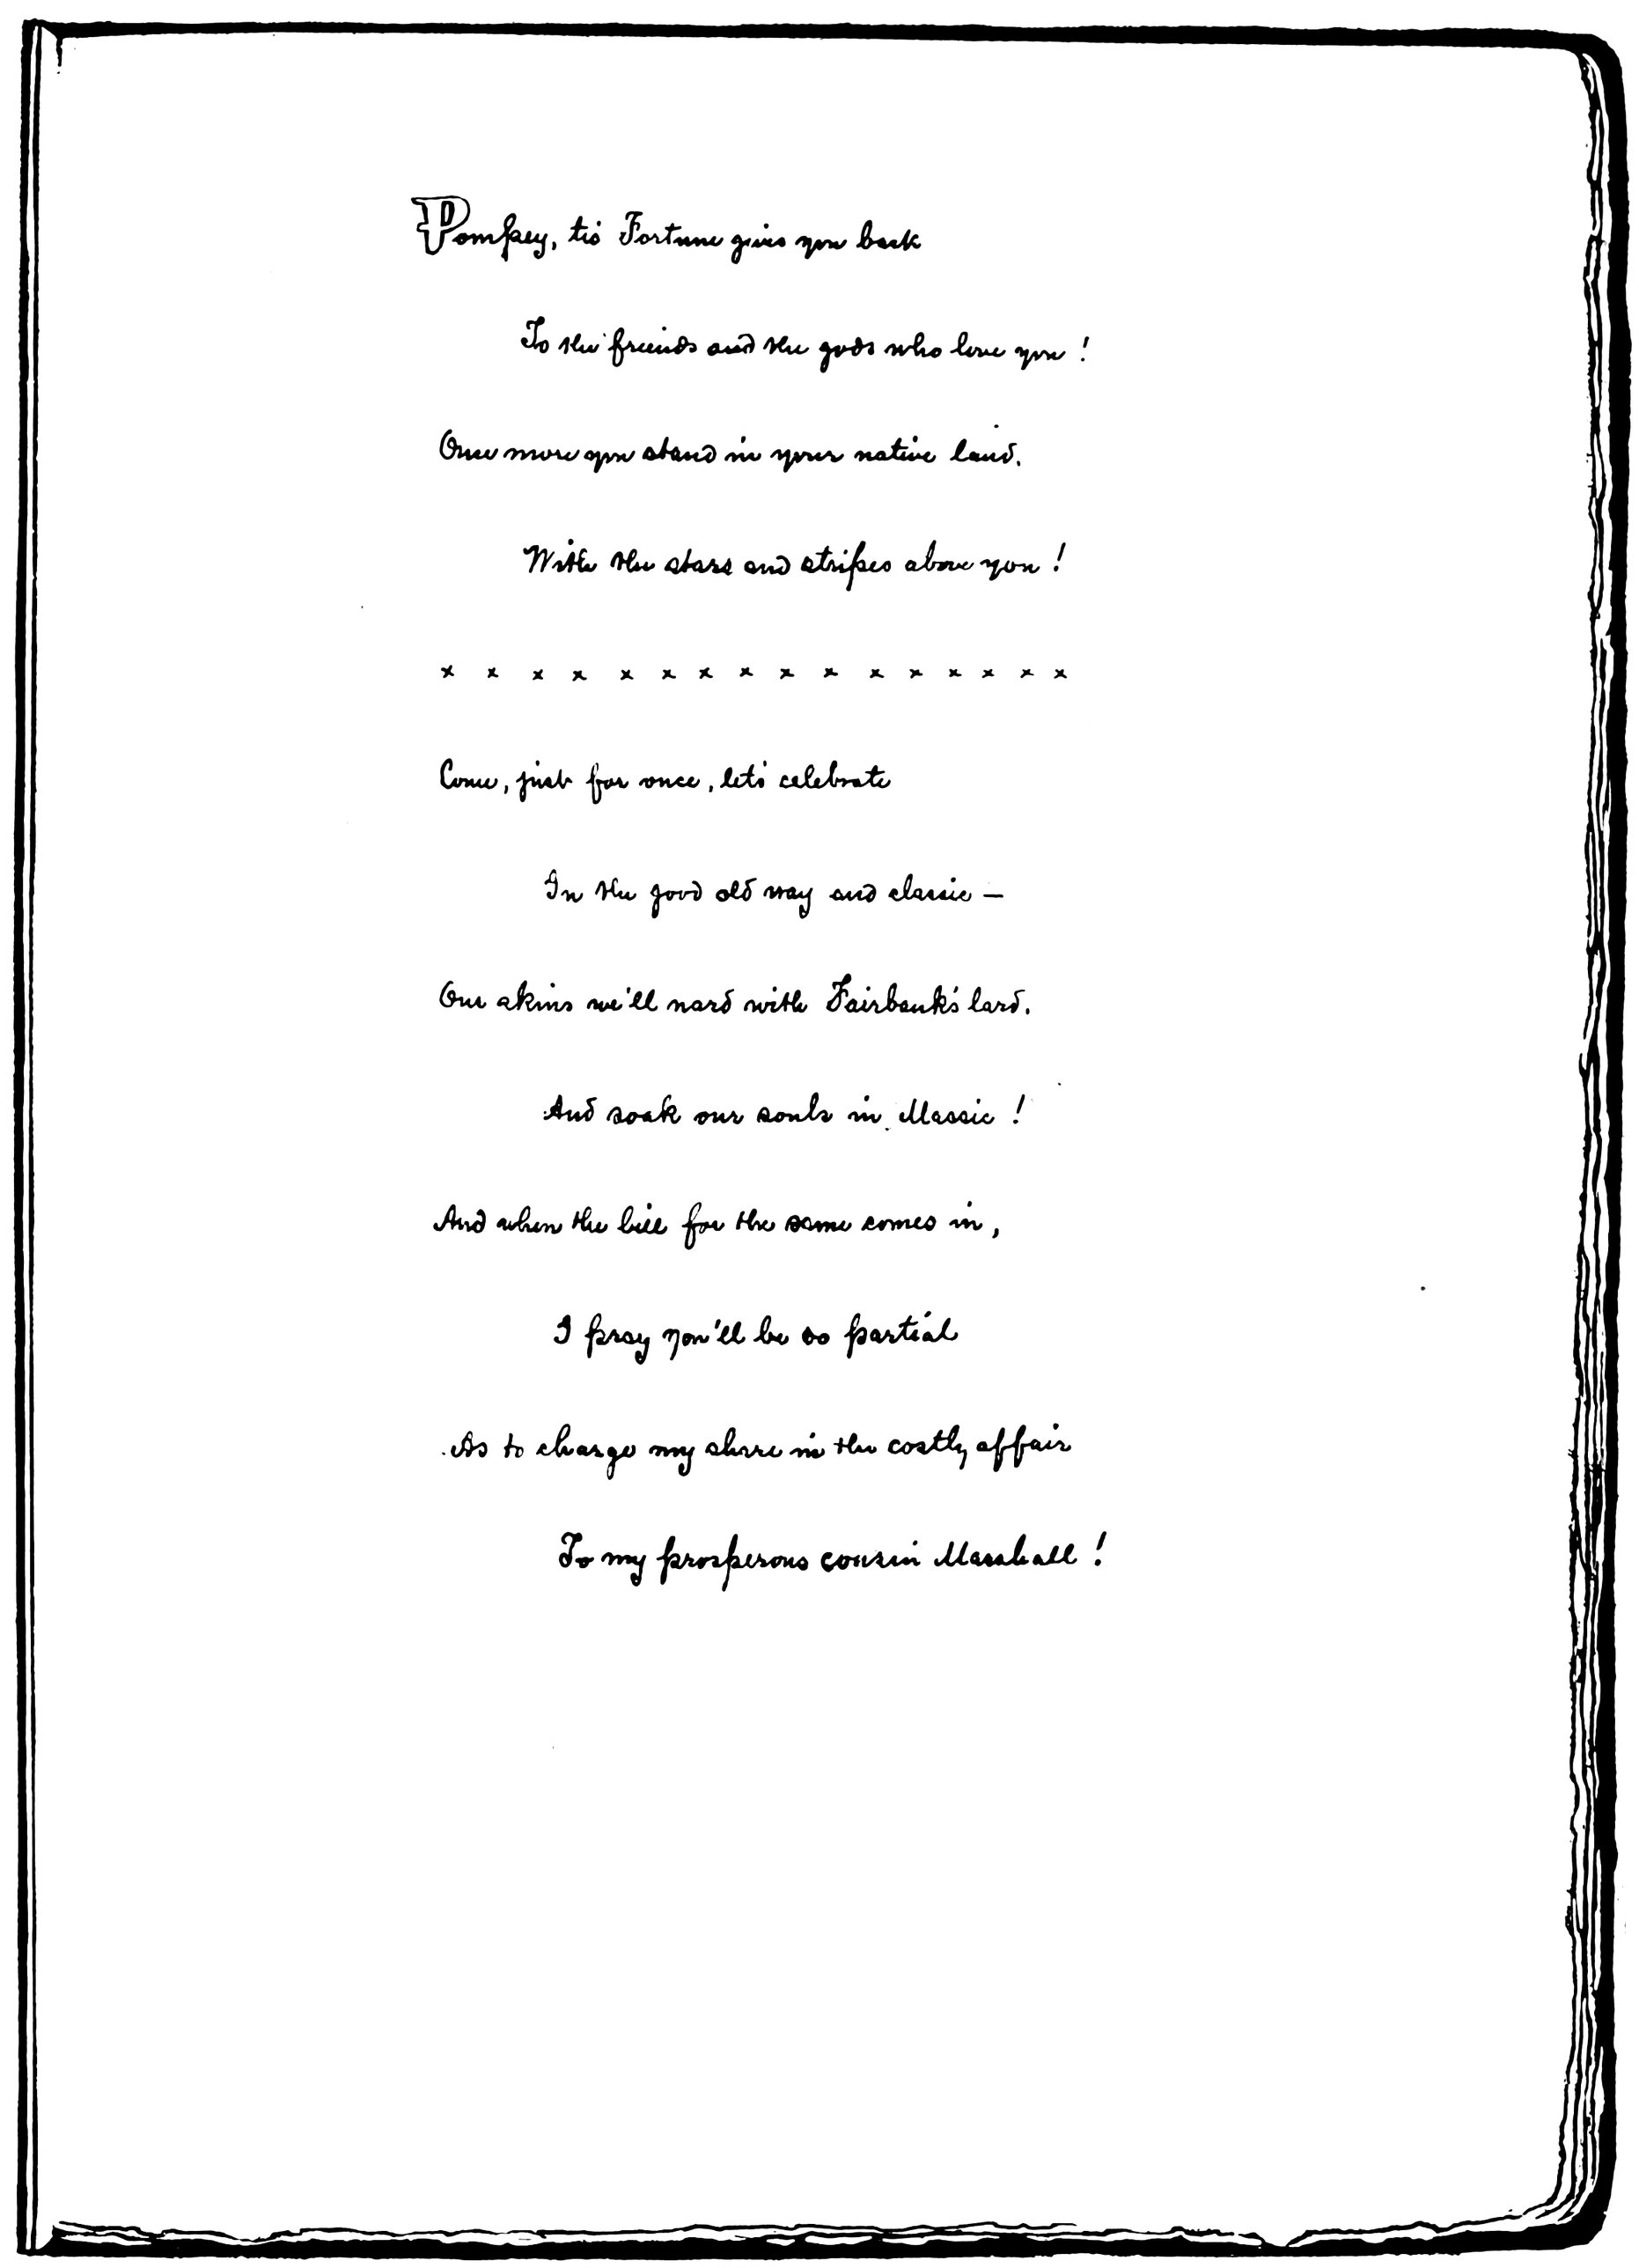 Pompey, tis Fortune gives you back
To the friends and the gods who love you!
Once more you stand in your native land.
With the stars and stripes above you!
x x x x x x x x x x x x x x x x
Come, just for once, let's celebrate
In the good old way and classic —
Our skins we'll nard with Fairbank's lard.
And soak our souls in Massic!
And when the bill for the same comes in,
I pray you'll be so partial
As to charge my share in the costly affair
To my prosperous cousin Marshall!